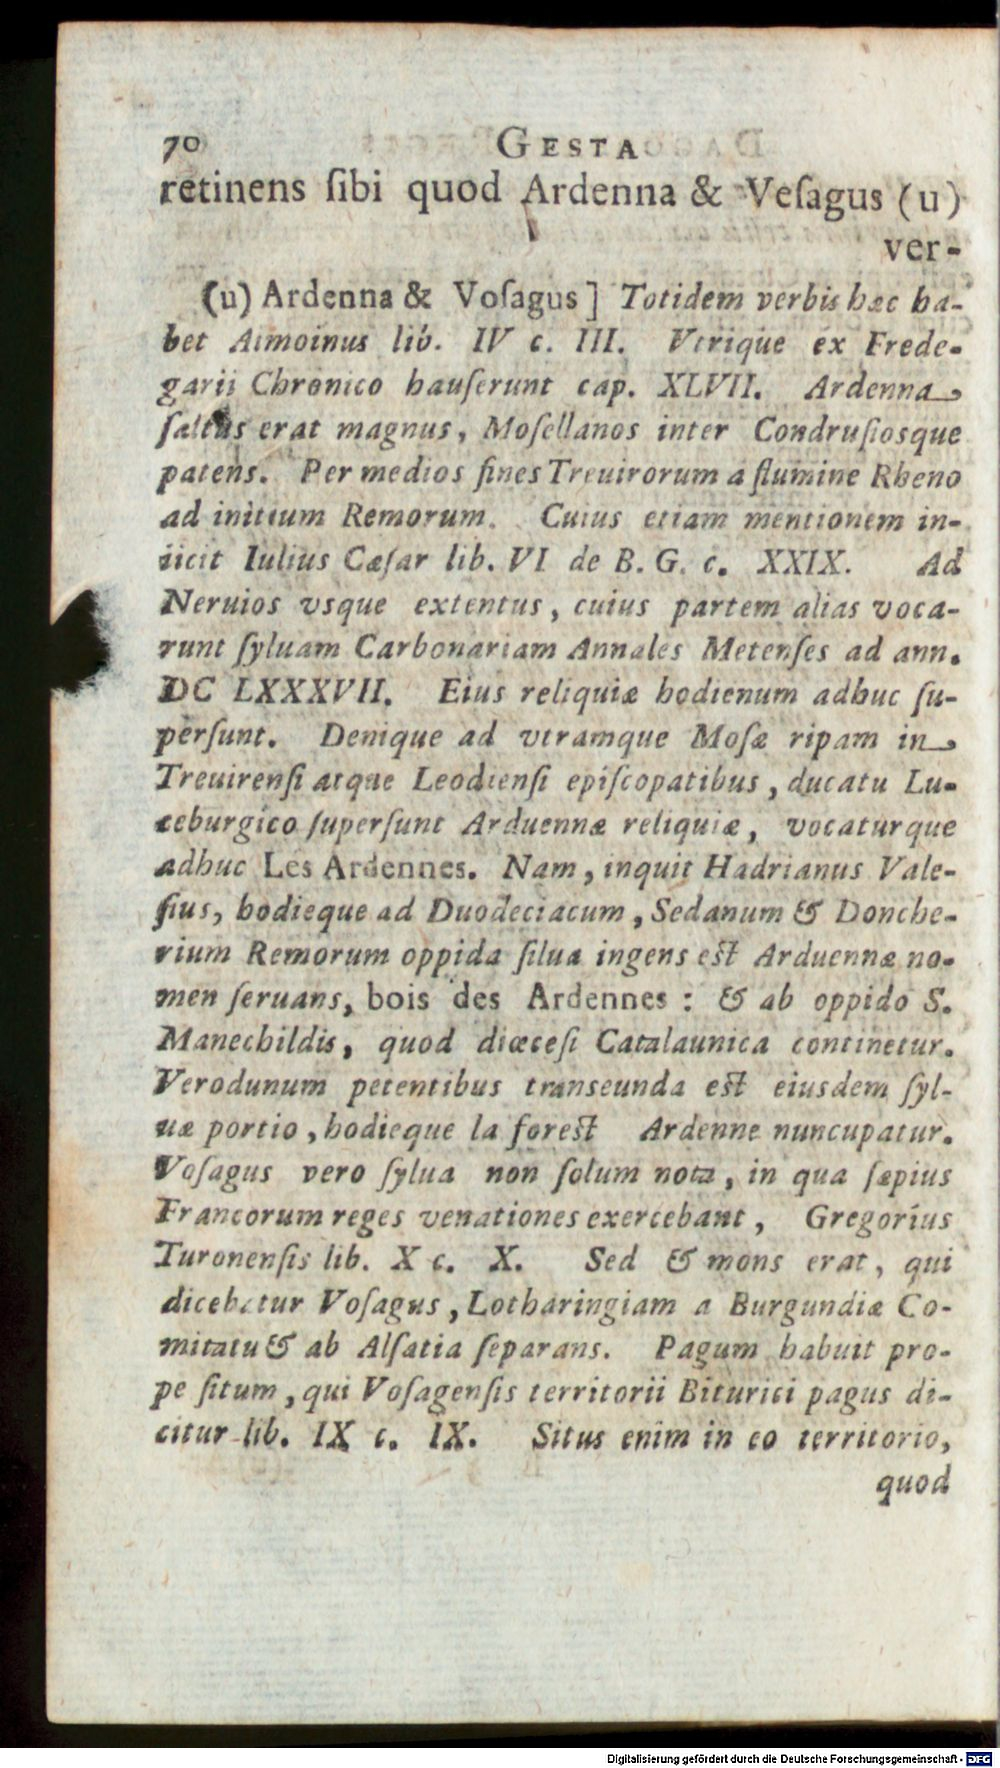 70 GESTA
retinens ſibi quod Ardenna & Veſagus (u)
ver-
(u) Ardenna & Voſagus] Totidem verbis hæc ha-
bet Aimoinus lib. IV c. III. Vtrique ex Frede-
garii Chronico hauſerunt cap. XLVII. Ardenna
ſaltus erat magnus, Moſellanos inter Condruſiosque
patens. Per medios fines Treuirorum a flumine Rheno
ad initium Remorum. Cuius etiam mentionem in-
iicit Iulius Cæſar lib. VI de B. G. c. XXIX. Ad
Neruios vsque extentus, cuius partem alias voca-
runt ſyluam Carbonariam Annales Metenſes ad ann.
DC LXXXVII. Eius reliquiæ hodienum adhuc ſu-
perſunt. Denique ad vtramque Moſæ ripam in
Treuirenſi atque Leodienſi epiſcopatibus, ducatu Lu-
ceburgico ſuperſunt Arduennæ reliquiæ, vocaturque
adhuc Les Ardennes. Nam, inquit Hadrianus Vale-
ſius, hodieque ad Duodeciacum, Sedanum & Donche-
rium Remorum oppida ſilua ingens est Arduennæ no-
men ſeruans, bois des Ardennes : & ab oppido S.
Manechildis, quod diœceſi Catalaunica continetur.
Verodunum petentibus transeunda est eiusdem ſyl-
uæ portio, hodieque la forest Ardenne nuncupatur.
Voſagus vero ſylua non ſolum nota, in qua ſæpius
Francorum reges venationes exercebant, Gregorius
Turonenſis lib. X c. X. Sed & mons erat, qui
dicebatur Voſagus, Lotharingiam a Burgundiæ Co-
mitatu & ab Alſatia ſeparans. Pagum habuit pro-
pe ſitum, qui Voſagenſis territorii Biturici pagus di-
citur lib. IX c. IX. Situs enim in eo territorio,
quod
Digitalisierung gefördert durch die Deutsche Forschungsgemeinschaft - DFG